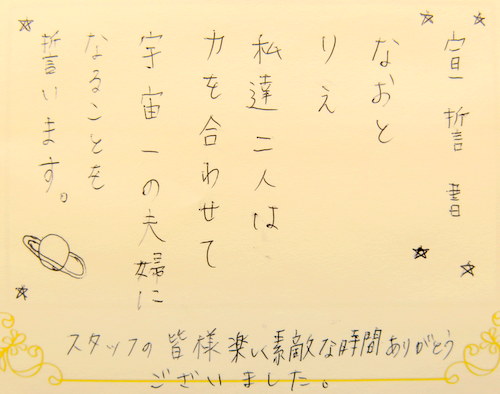 宣誓書
なおと
りえ
私達二人は
力を合わせて
宇宙一の夫婦に
なることを
誓います。
スタッフの皆様楽しく素敵な時間ありがとう
ございました。